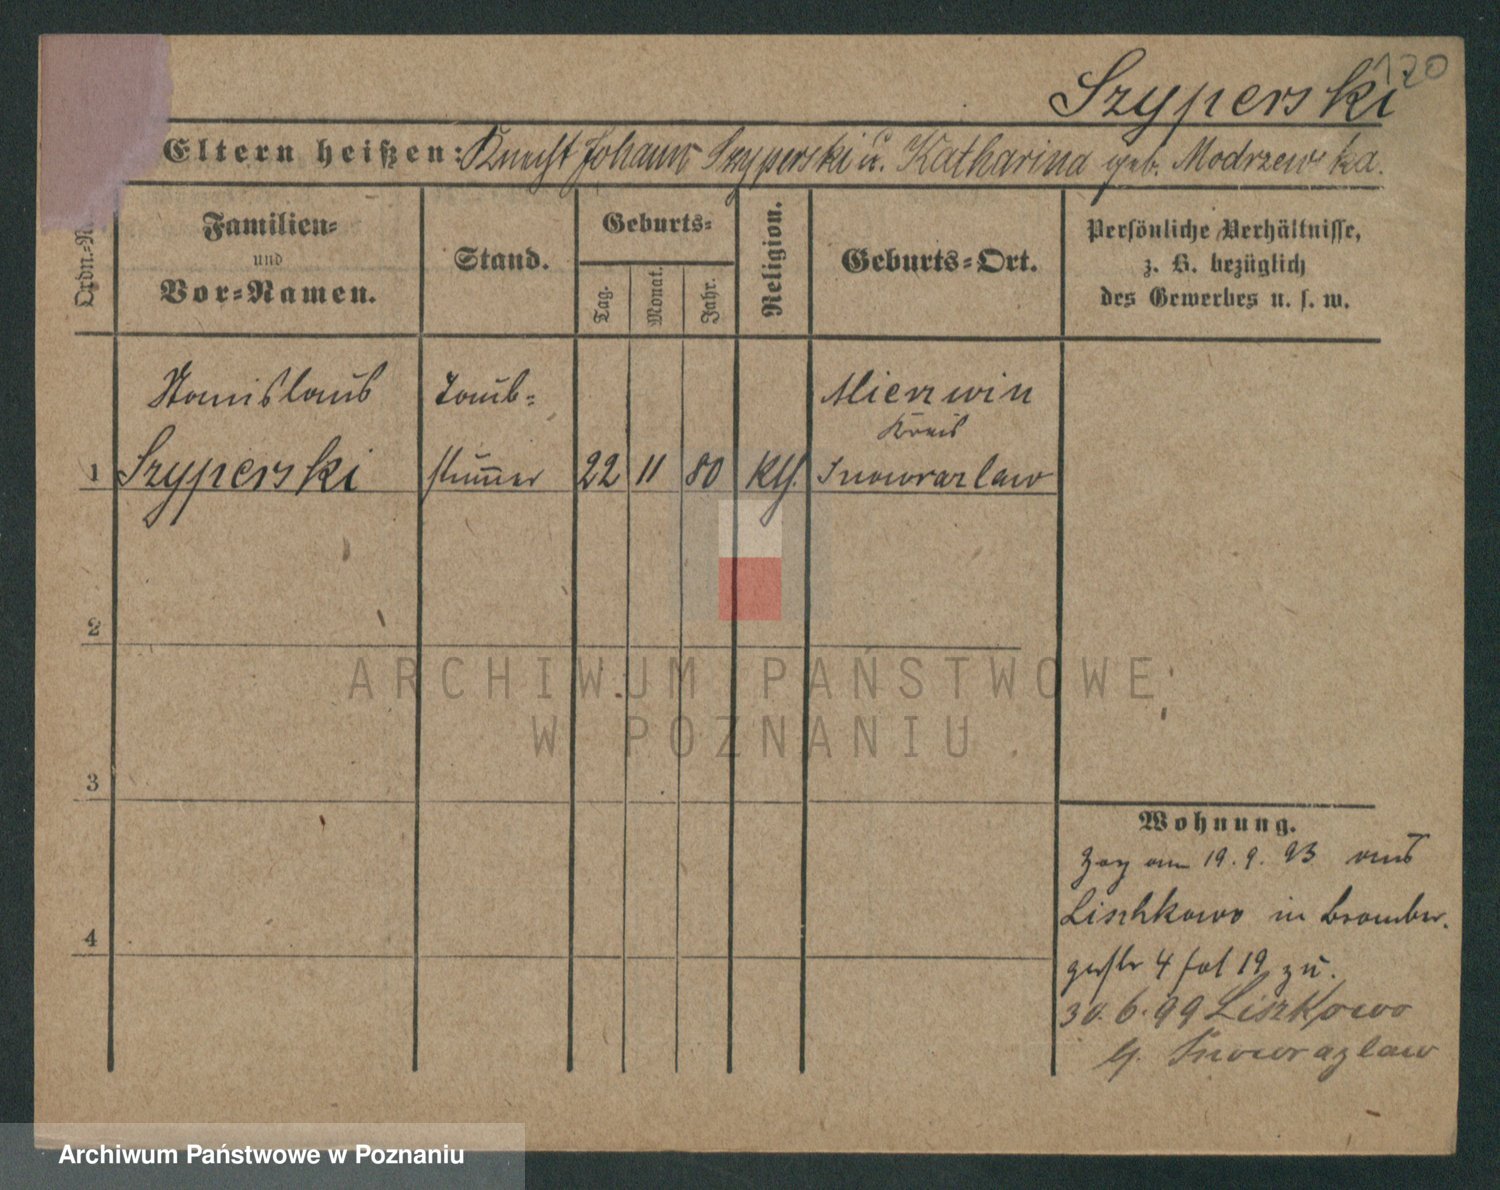 120
Szyperski
Eltern heißen: Knecht Johann Szyperski u. Katharina geb. Modrzewska.
Ordn.-N
Familien-
und
Vor-Namen.
Stand.
Geburts-
Tag.
Monat.
Jahr.
Religion.
Geburts-Ort.
Persönliche Verhältnisse,
z. B. bezüglich
des Gewerbes u. s. w.
Stanislaus Taub- Mierzwin
Kreis
1 Szyperski stummer 22 11 80 kth. Inowrazlaw
2
3
4
ARCHIWUM PAŃSTWOWE
W POZNANIU
Wohnung.
Zog am 19. 9. 93 aus
Lischkowo in Bromber.
gerstr 4 fol 19 zu.
30. 6. 99 Liszkowo
Inowrazlaw
Archiwum Państwowe w Poznaniu